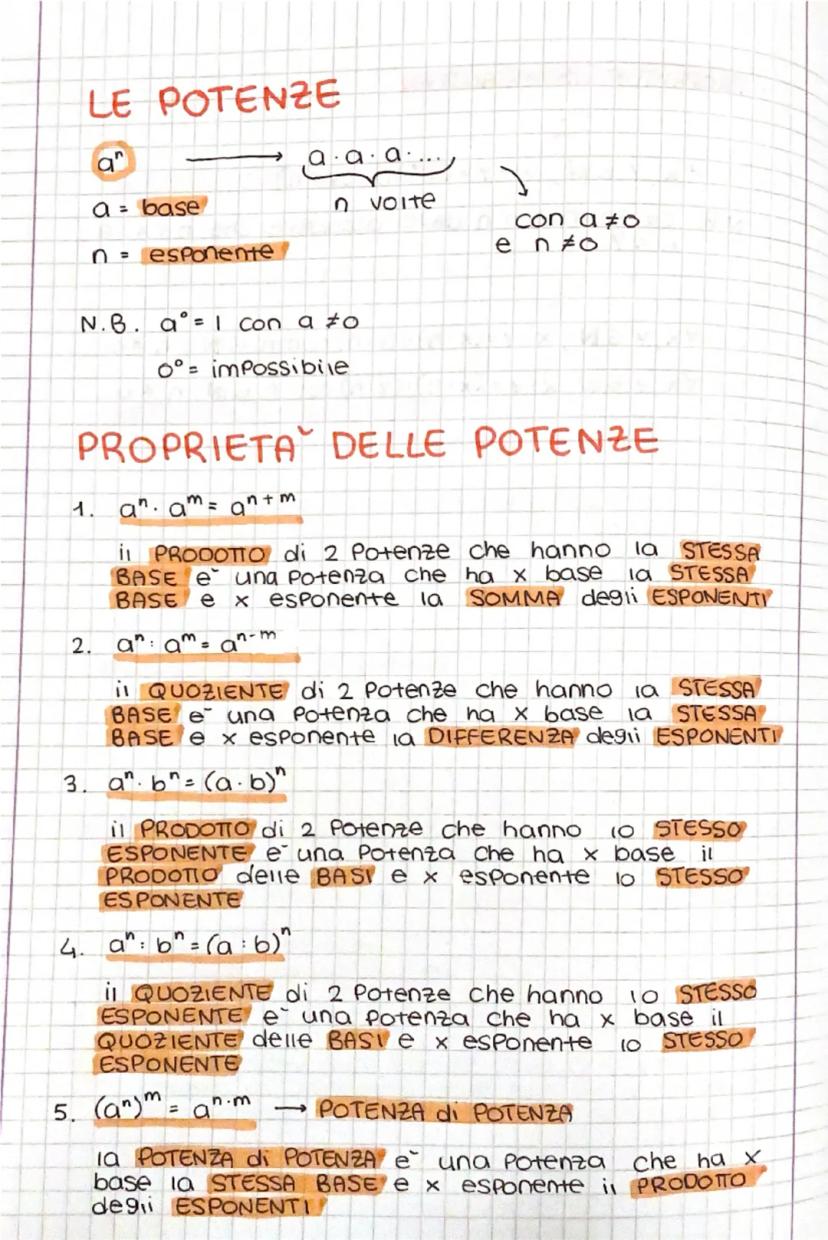 LE POTENZE
aⁿ → a · a · a · ...
a = base n volte
con a ≠ 0
n = esponente e n ≠ 0
N.B. a⁰ = 1 con a ≠ 0
0⁰ = impossibile
PROPRIETA` DELLE POTENZE
1. aⁿ · aᵐ = aⁿ⁺ᵐ
il PRODOTTO di 2 Potenze che hanno la STESSA
BASE e` una Potenza che ha x base la STESSA
BASE e x esponente la SOMMA degli ESPONENTI
2. aⁿ : aᵐ = aⁿ⁻ᵐ
il QUOZIENTE di 2 Potenze che hanno la STESSA
BASE e` una Potenza che ha x base la STESSA
BASE e x esponente la DIFFERENZA degli ESPONENTI
3. aⁿ · bⁿ = (a · b)ⁿ
il PRODOTTO di 2 Potenze che hanno lo STESSO
ESPONENTE e` una Potenza che ha x base il
PRODOTTO delle BASI e x esponente lo STESSO
ESPONENTE
4. aⁿ : bⁿ = (a : b)ⁿ
il QUOZIENTE di 2 Potenze che hanno lo STESSO
ESPONENTE e` una Potenza che ha x base il
QUOZIENTE delle BASI e x esponente lo STESSO
ESPONENTE
5. (aⁿ)ᵐ = aⁿ·ᵐ → POTENZA di POTENZA
la POTENZA di POTENZA e` una Potenza che ha x
base la STESSA BASE e x esponente il PRODOTTO
degli ESPONENTI